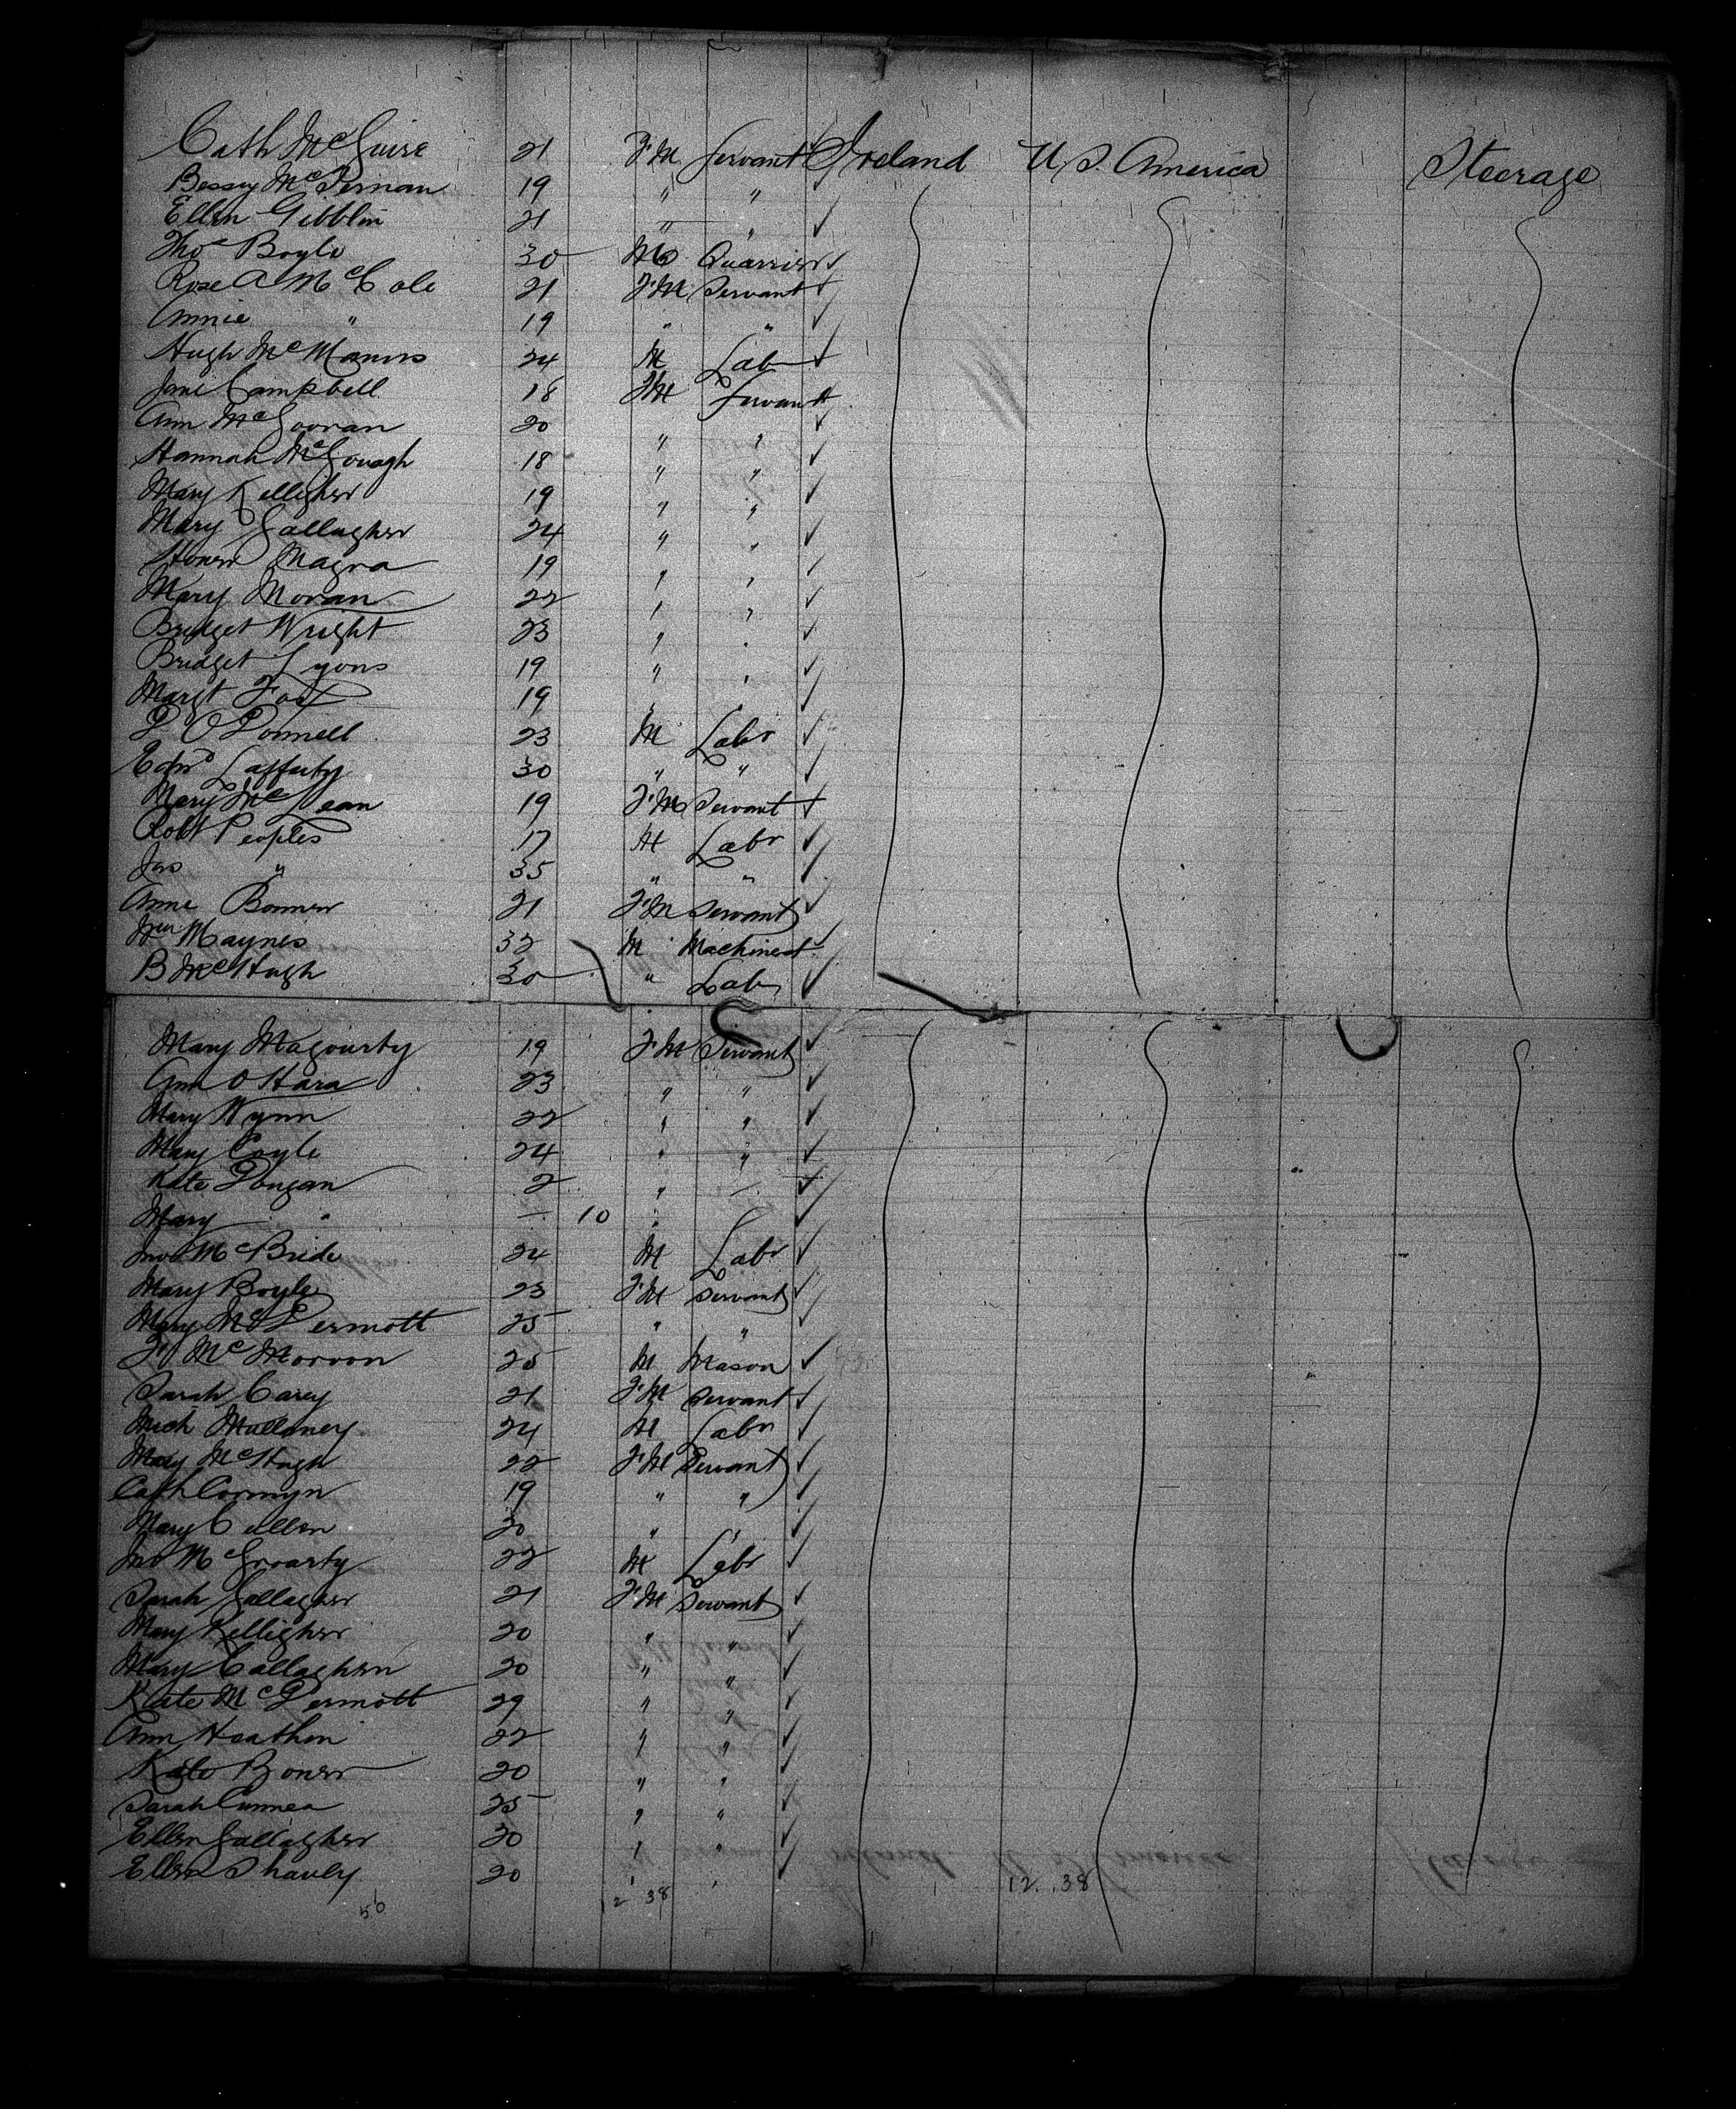 Cath McGuire 21 FM Servant Ireland U.S. America Steerage
Bessy McTernan 19 " "
Ellen Gibblin 21 " "
Thos Boyle 30 M Quarrier
Rose A McCole 21 FM Servant
Annie " 19 " "
Hugh McManus 24 M Lab
Jane Campbell 18 FM Servant
Ann McGovran 20 " "
Hannah McGouagh 18 " "
Mary Kelligher 19 " "
Mary Gallagher 24 " "
Honer Magra 19 " "
Mary Moran 22 " "
Bridget Wright 23 " "
Bridget Lyons 19 " "
Margt Fox 19 "
P O'Donnell 23 M Labr
Edwd Lafferty 30 " "
Mary McLean 19 FM Servant
Robt Peoples 17 M Labr
Jas " 35 " "
Anne Bonner 21 FM Servant
Wm Maynes 32 M Machinest
B McHugh 30 " Lab
Mary Magourty 19 FM Servant
Ann O Hara 23 " "
Mary Wynn 22 " "
Mary Coyle 24 " "
Kate Dougan 2 " —
Mary " — 10 "
Jno McBride 24 M Labr
Mary Boyle 23 FM Servant
Mary McDermott 25 " "
McMorron 25 M Mason
Sarah Carey 21 FM Servant
Mich Mullaney 24 M Labr
Mary McHugh 22 FM Servant
Cath Cormyn 19 " "
Mary Cullen 20 " "
Jno McGroarty 22 M Labr
Sarah Gallagher 21 FM Servant
Mary Kelligher 20 " "
Mary Callaghan 20 " "
Kate McDermott 29 " "
Ann Heathen 22 " "
Kate Boner 20 " "
Sarah Cunnea 25 " "
Ellen Gallagher 20 " "
Ellen 20 " "
50 12 38 12.38